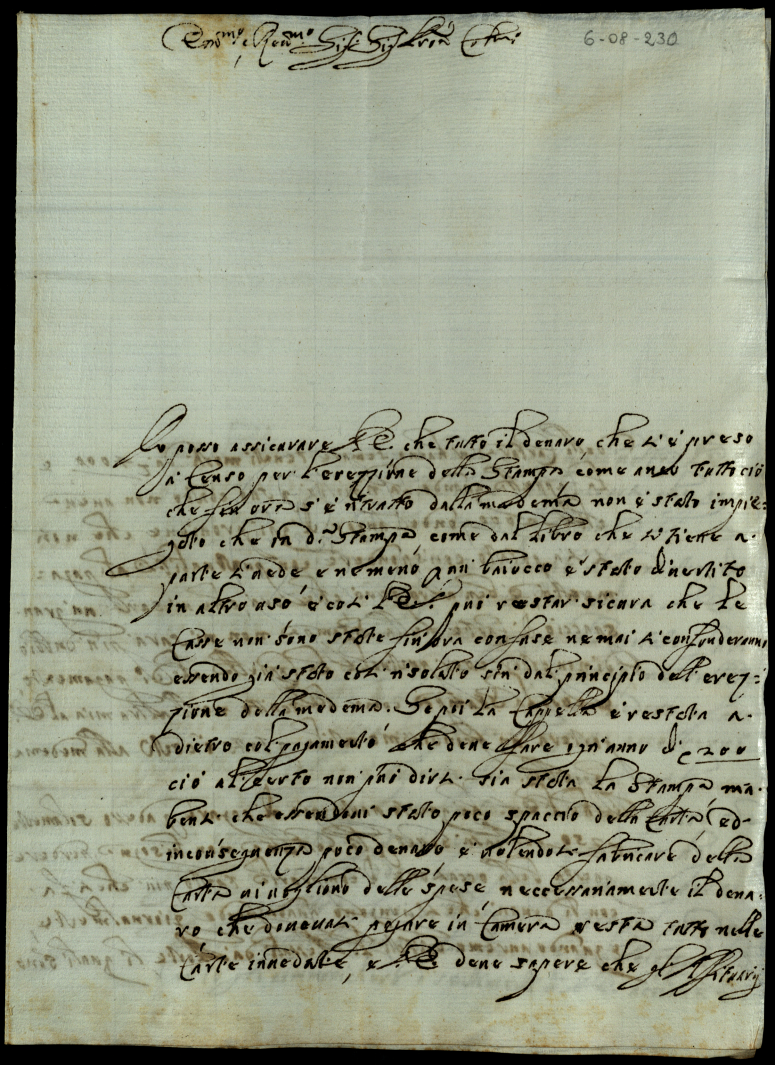 Em.mo e Rev.mo Sig.r Sig.r Pron Col.mo
6-08-230
Io posso assicurare V.E. che tutto il denaro, che si è preso
a Censo per l'erezzione della Stampa come anco tutto ciò
che fin ora s'è ritratto dalla medema non è stato impie-
gato che in d.a Stampa come dal libro che si tiene a
parte si vede e nemeno un baiocco è stato divertito
in altro uso e così V.E. può restar sicura che le
Casse non sono state fin'ora confuse ne mai si confonderanno
essendo già stato così risolato sin dal principio dell'erez-
zione della medema. Se poi la Cappella è restata a
dietro col pagamento che deve fare ogni anno di 200
ciò al certo non può dirsi sia stata la Stampa ma
bensì che essendovi stato poco spaccio della Carta, ed
in conseguenza poco denaro e volendosi fabricare della
Carta vi vogliono delle spese necessariamente il dena-
ro che dovevasi pagare in Camera resta tutto nelle
Carte invendute, e V.E. deve sapere che gl'Affittuarij